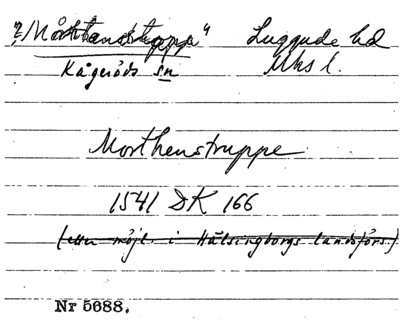 ?/Mårthenstruppe" Luggude hd
Kågeröds sn Mhs l.
Morthenstruppe
1541 DK 166
(eller möjl. i Hälsingborgs landsförs.)
Nr 5688.